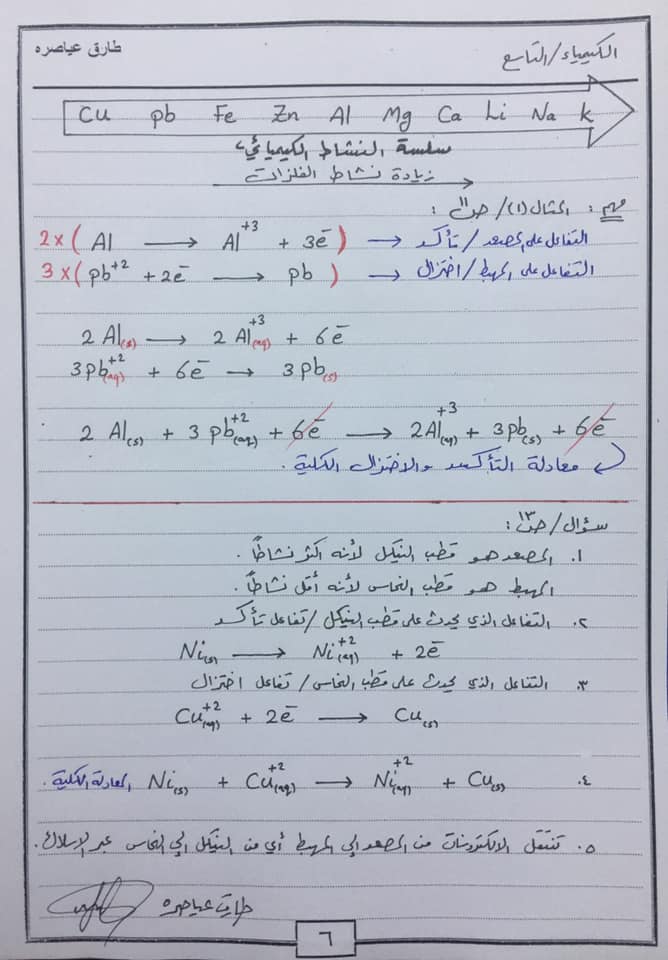 الكيمياء/التاسع
طارق عياصره
Cu pb Fe Zn Al Mg Ca Li Na k
سلسة النشاط الكيميائي
زيادة نشاط الفلزات
مهم : المثال (١)/ ص١١ :
2x ( Al ⟶ Al⁺³ + 3ē ) → التفاعل على المصعد / تأكسد
3x ( pb⁺² + 2ē ⟶ pb ) → التفاعل على المهبط / اختزال
2 Al(s) ⟶ 2 Al⁺³(aq) + 6ē
3pb⁺²(aq) + 6ē → 3Pb(s)
2 Al(s) + 3 pb⁺²(aq) + 6ē ⟶ 2Al⁺³(aq) + 3pb(s) + 6ē
معادلة التأكسد والاختزال الكلية .
سؤال / ص١٣ :
١. المصعد هو قطب النيكل لأنه أكثر نشاطاً .
المهبط هو قطب النحاس لأنه أقل نشاطاً .
٢. التفاعل الذي يحدث على قطب النيكل / تفاعل تأكسد
Ni(s) ⟶ Ni⁺²(aq) + 2ē
٣. التفاعل الذي يحدث على قطب النحاس / تفاعل اختزال
Cu⁺²(aq) + 2ē ⟶ Cu(s)
٤. Ni(s) + Cu⁺²(aq) ⟶ Ni⁺²(aq) + Cu(s) المعادلة الكلية .
٥. تنتقل الالكترونات من المصعد إلى المهبط أي من النيكل إلى النحاس عبر الاسلاك .
طارق عياصره
٦